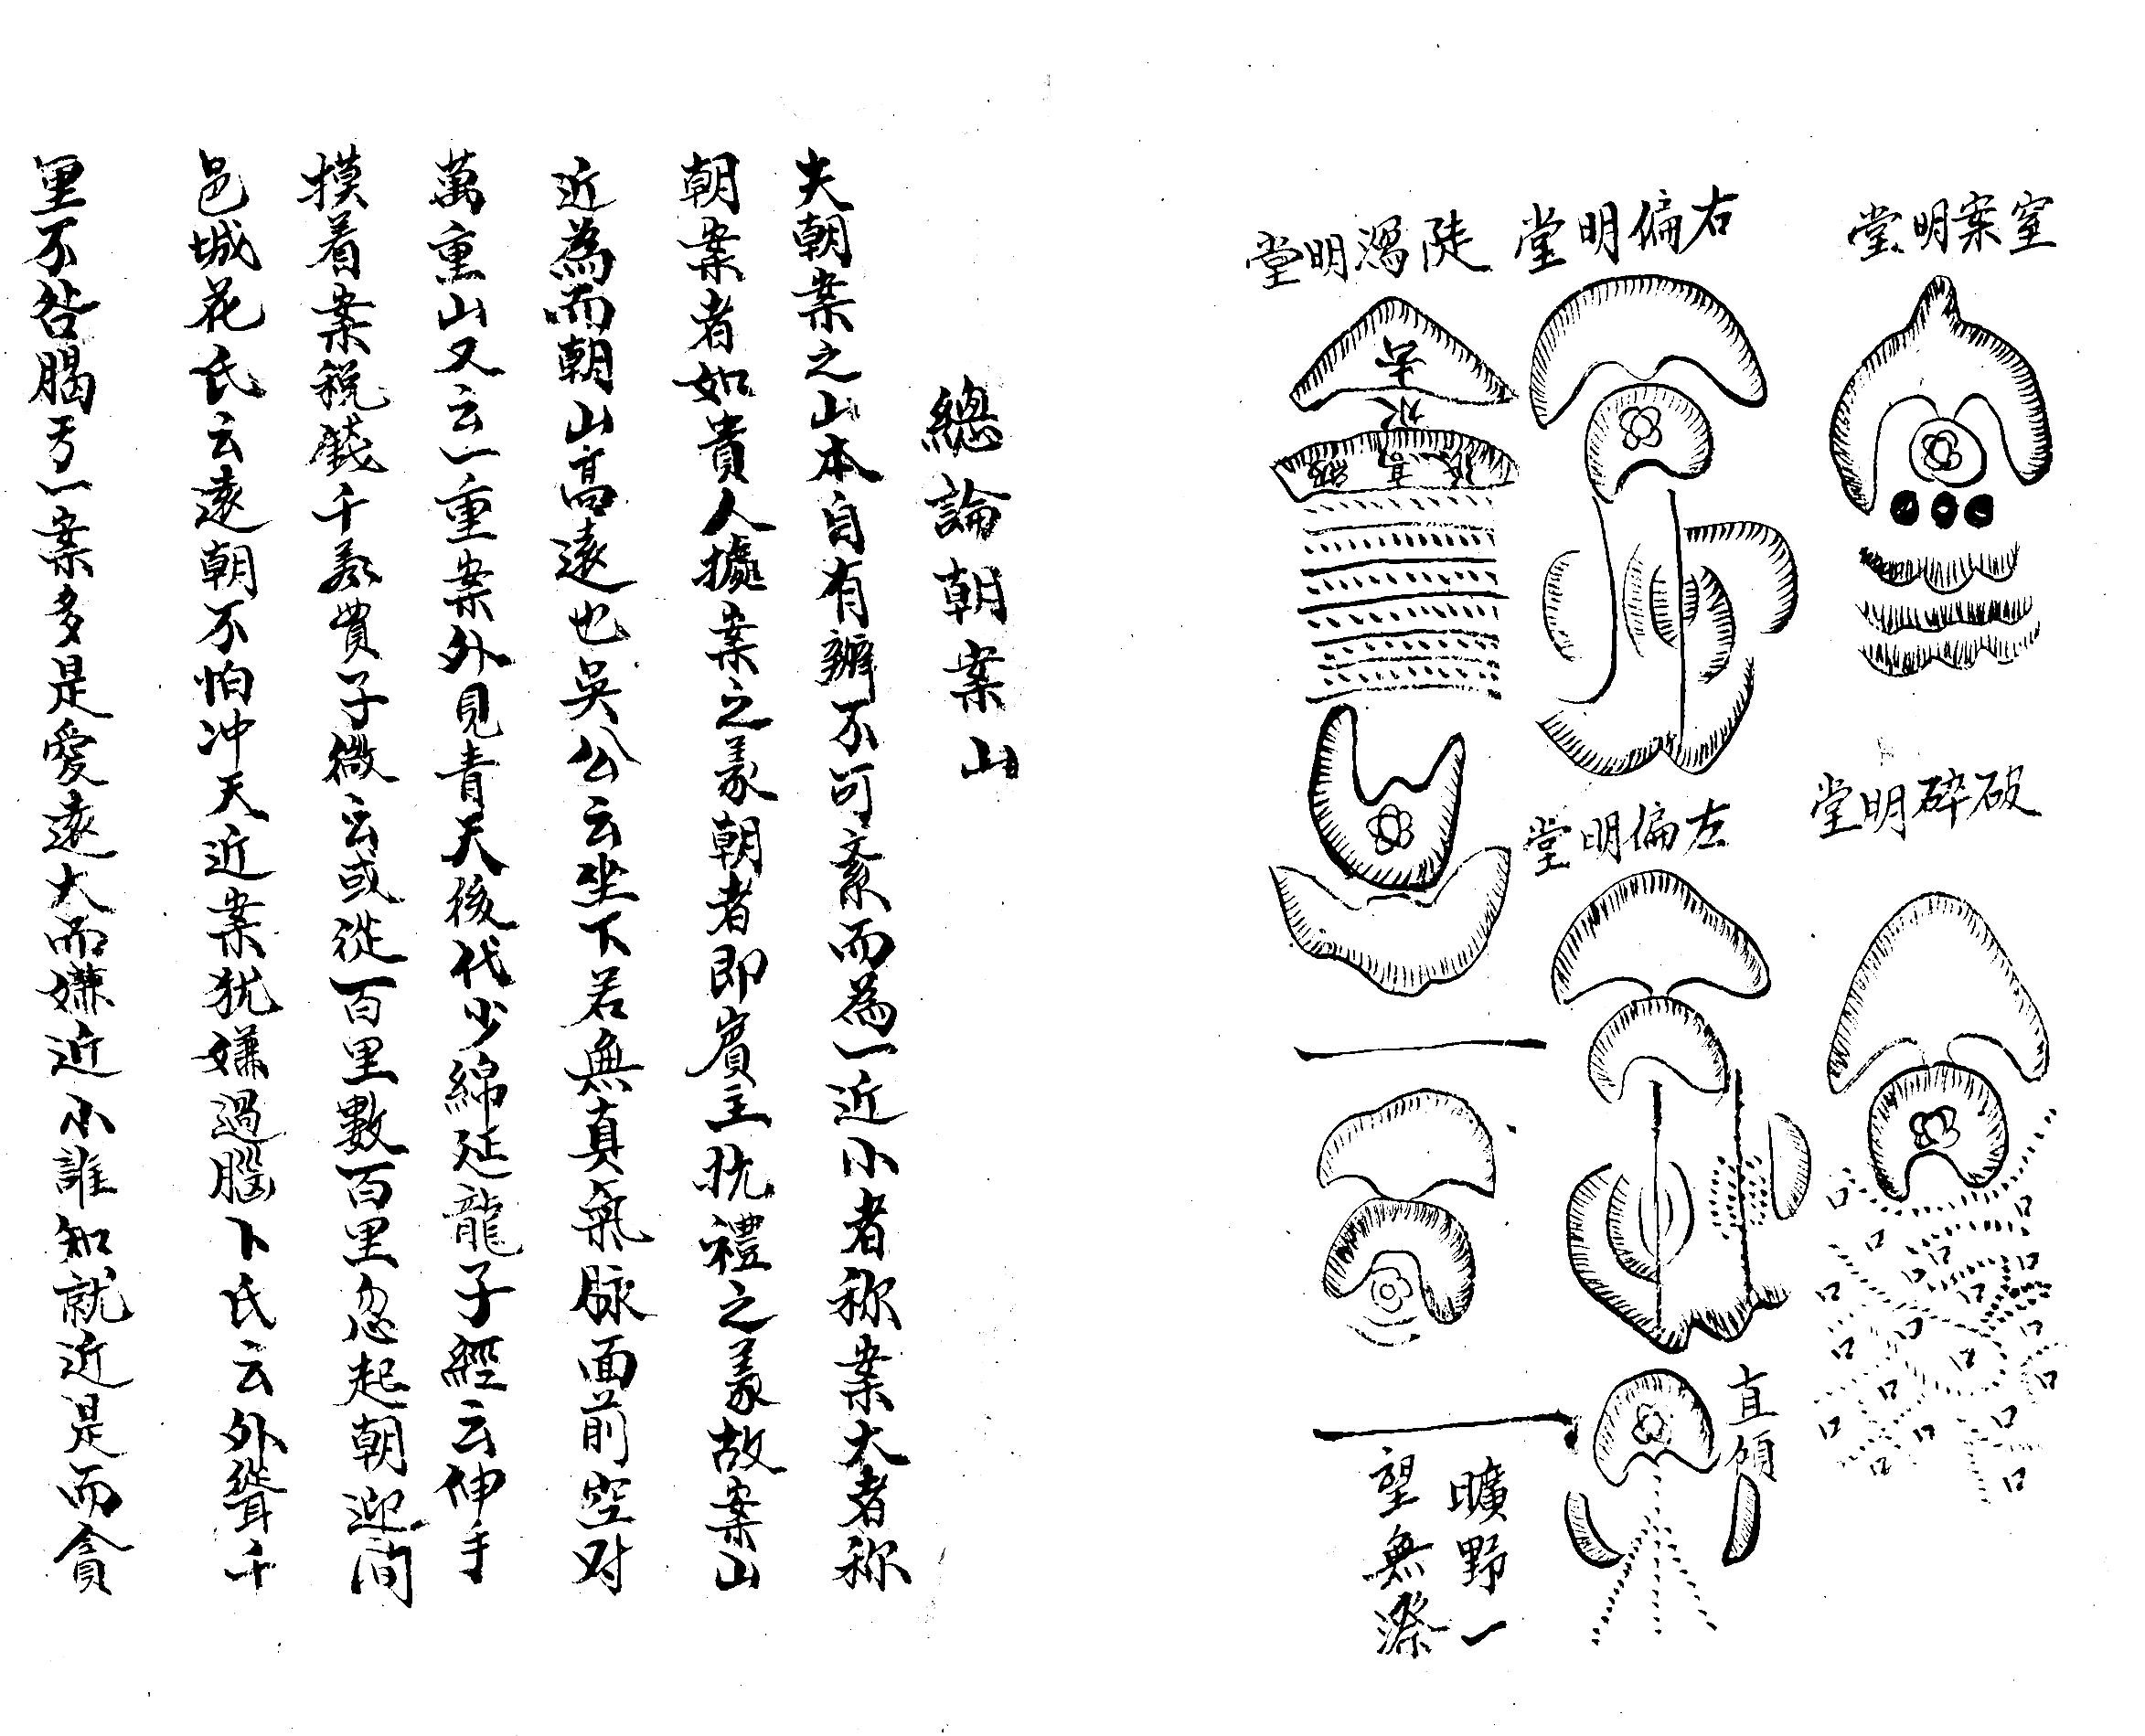 窒案明堂
破碎明堂
右偏明堂
左偏明堂
直傾
陡瀉明堂
水
曠野一
望無際
總論朝案山
夫朝案之山本自有辨不可紊而為一近小者称案大者称
朝案者如貴人據案之義朝者即賓主抗禮之義故案山
近為而朝山高遠也吳公云坐下若無真氣脉面前空对
萬重山又云一重案外見青天後代少綿延龍子經云伸手
摸着案税錢千萬貫子微云或從百里數百里忽起朝迎間
邑城花氏云遠朝不怕冲天近案犹嫌過腦卜氏云外聳千
里不咎腸亐一案多是愛遠大而嫌近小誰知就近是而貪